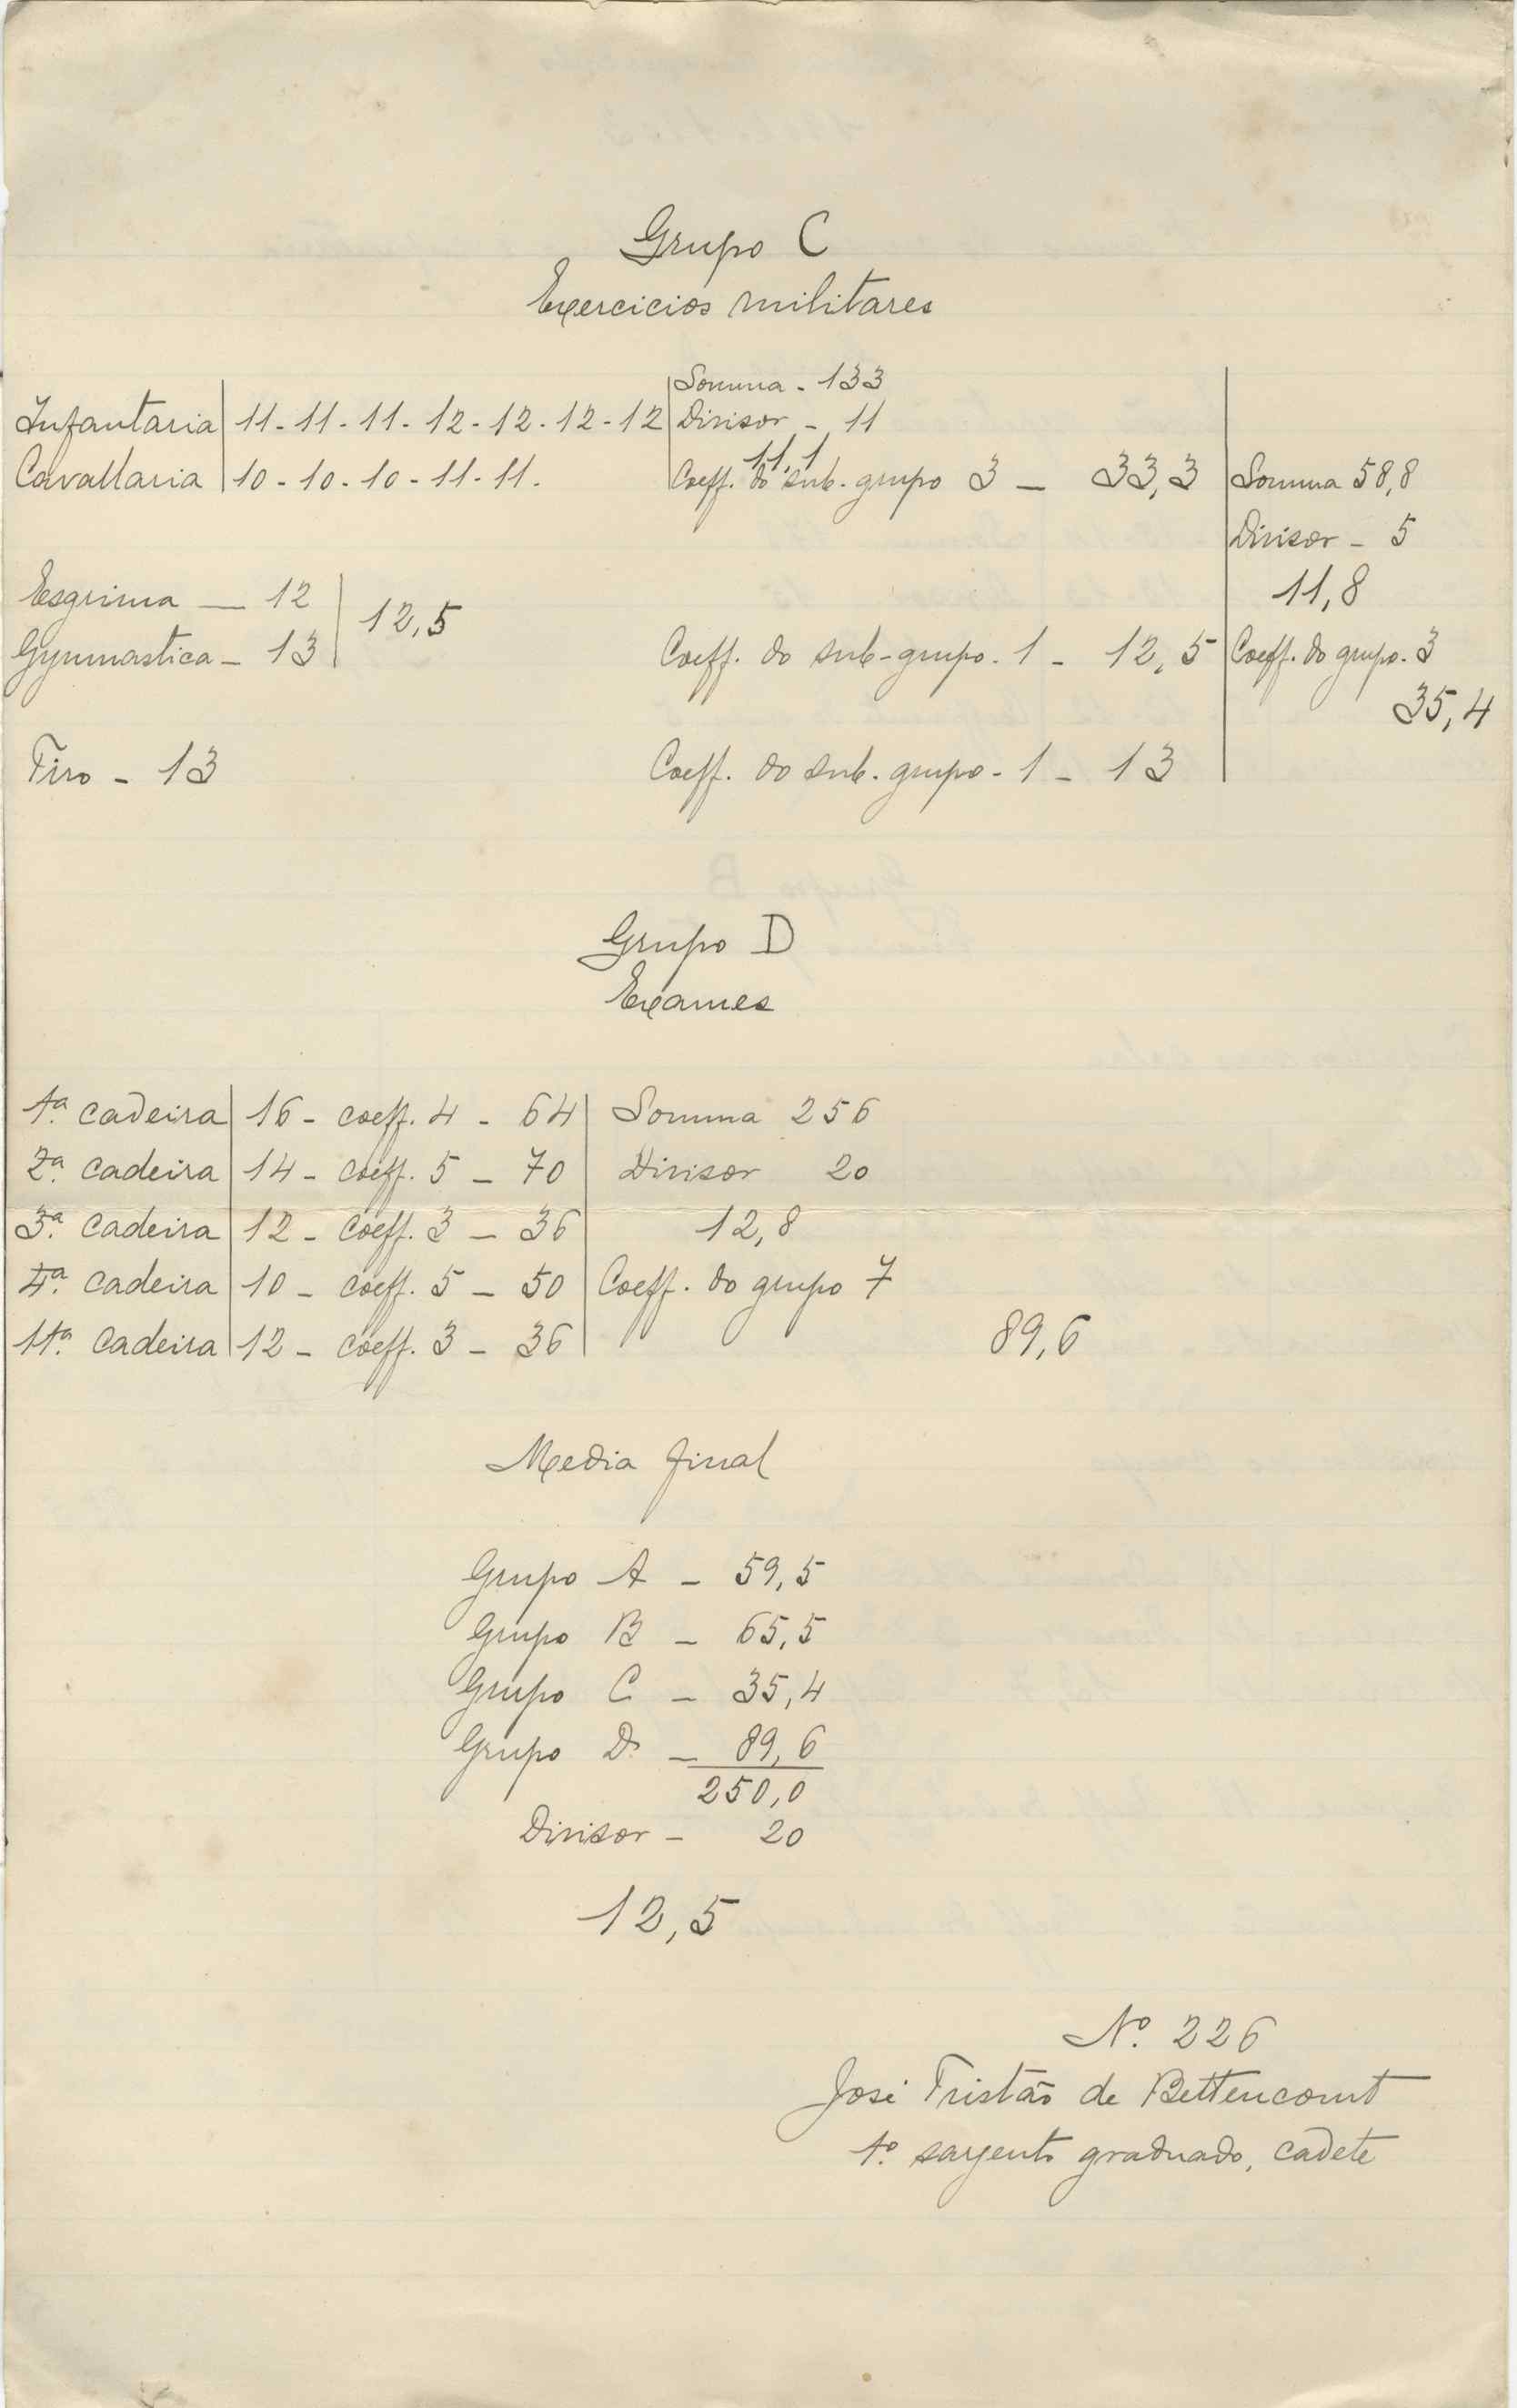 Grupo C
Exercicios militares
Somma - 133
Infantaria 11 - 11 - 11 - 12 - 12 - 12 - 12 Divisor - 11
11,1
Cavallaria 10 - 10 - 10 - 11 - 11. Coeff. do sub-grupo 3 - 33,3 Somma 58,8
Divisor - 5
Esgrima - 12 11,8
12,5
Gymnastica - 13 Coeff. do sub-grupo. 1 - 12,5 Coeff. do grupo. 3
35,4
Tiro - 13 Coeff. do sub-grupo - 1 - 13
Grupo D
Exames
1ª. cadeira 16 - coeff. 4 - 64 Somma 256
2ª. cadeira 14 - coeff. 5 - 70 Divisor 20
3ª. cadeira 12 - coeff. 3 - 36 12,8
4ª. cadeira 10 - coeff. 5 - 50 Coeff. do grupo 7
11ª. cadeira 12 - coeff. 3 - 36 89,6
Media final
Grupo A - 59,5
Grupo B - 65,5
Grupo C - 35,4
Grupo D - 89,6
250,0
Divisor - 20
12,5
Nº. 226
José Tristão de Bettencourt
1º. sargento graduado, cadete